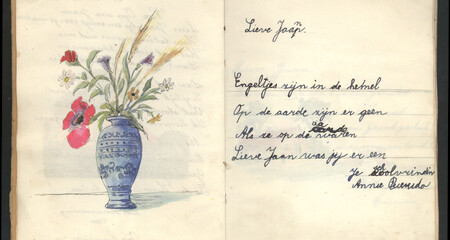 Lieve Jaan.
Engeltjes zijn in de hemel
Op de aarde zijn er geen
Als ze op de waren
Lieve Jaan was jij er een
Je Schoolvriendin
Annie Querido